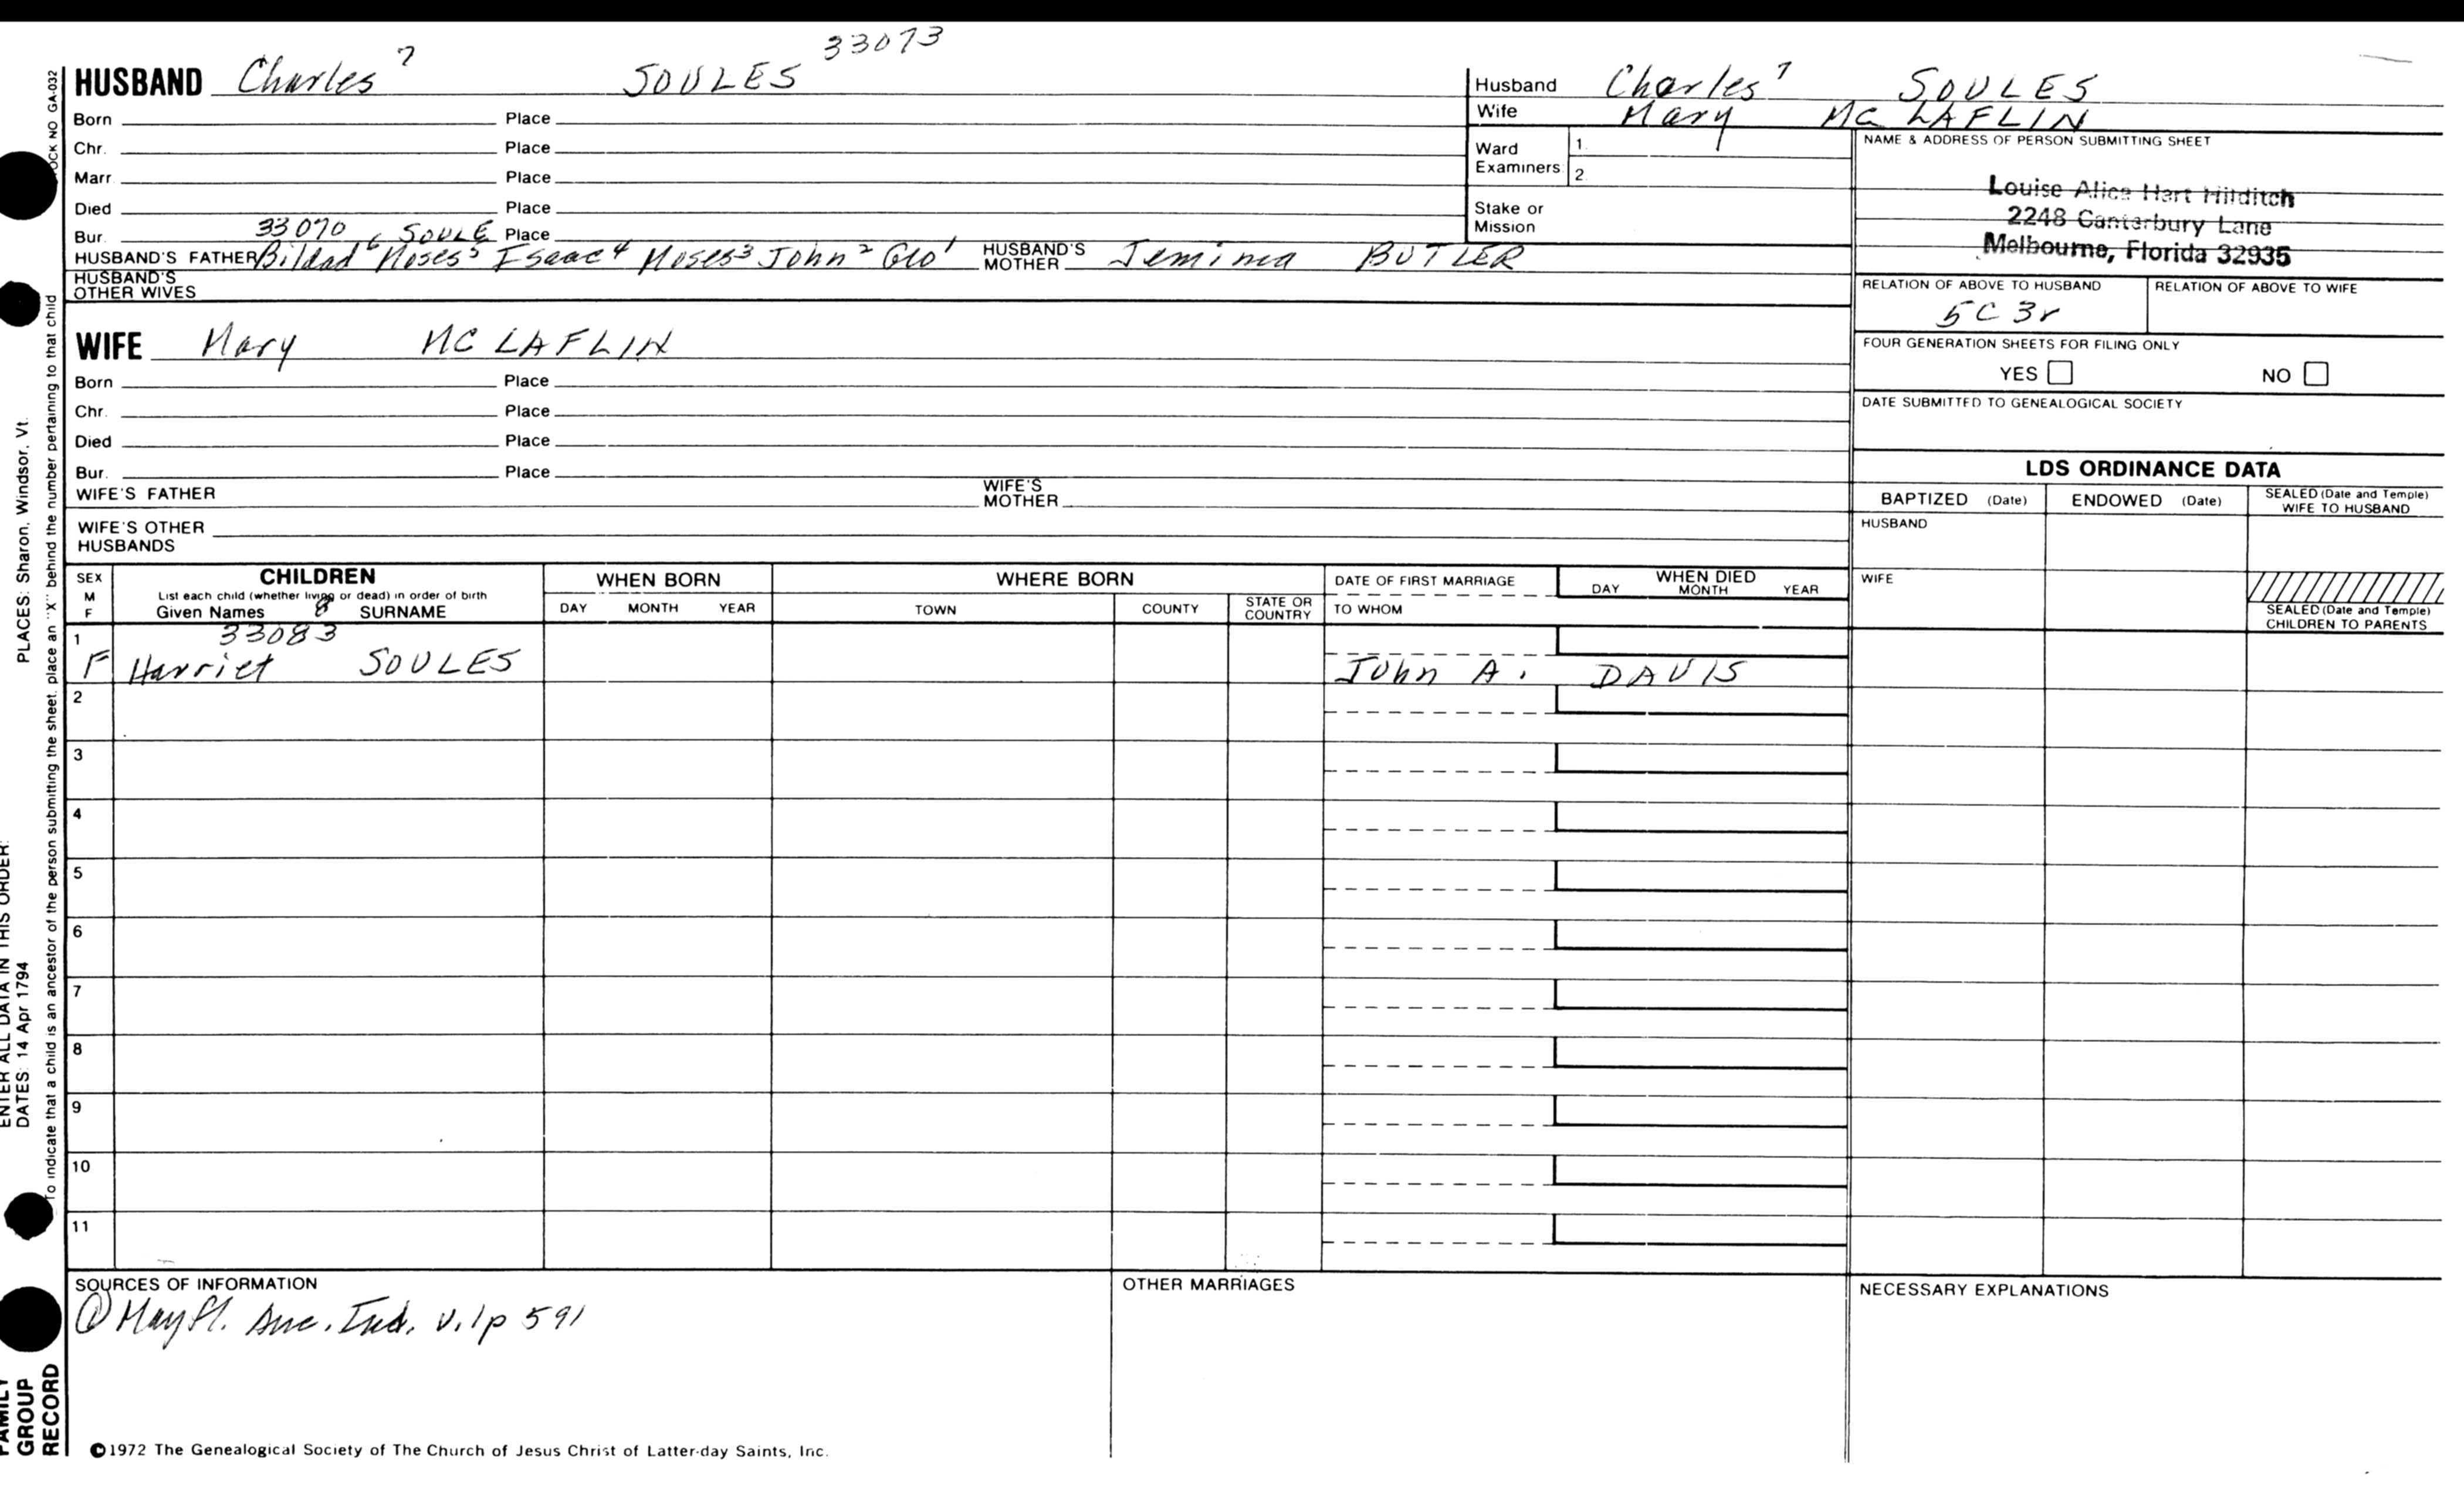 33073
HUSBAND Charles 7 SOULES
Born Place
Chr. Place
Marr. Place
Died Place
33070
Bur. 6 SOULE Place
HUSBAND'S FATHER Bildad Moses 5 Isaac 4 Moses 3 John 2 Geo 1 HUSBAND'S MOTHER Jemima BUTLER
HUSBAND'S
OTHER WIVES
WIFE Mary MC LAFLIN
Born Place
Chr. Place
Died Place
Bur. Place
WIFE'S FATHER WIFE'S MOTHER
WIFE'S OTHER
HUSBANDS
Husband Charles 7 SOULES
Wife Mary MC LAFLIN
Ward
Examiners
1.
2.
Stake or
Mission
NAME & ADDRESS OF PERSON SUBMITTING SHEET
Louise Alice Hart Hilditch
2248 Canterbury Lane
Melbourne, Florida 32935
RELATION OF ABOVE TO HUSBAND RELATION OF ABOVE TO WIFE
5C 3r
FOUR GENERATION SHEETS FOR FILING ONLY
YES NO
DATE SUBMITTED TO GENEALOGICAL SOCIETY
LDS ORDINANCE DATA
BAPTIZED (Date) ENDOWED (Date) SEALED (Date and Temple)
WIFE TO HUSBAND
HUSBAND
WIFE
SEALED (Date and Temple)
CHILDREN TO PARENTS
SEX
M
F
CHILDREN
List each child (whether living or dead) in order of birth
Given Names 8 SURNAME
WHEN BORN
DAY MONTH YEAR
WHERE BORN
TOWN COUNTY STATE OR COUNTRY
DATE OF FIRST MARRIAGE
TO WHOM
WHEN DIED
DAY MONTH YEAR
1 33083
F Harriet SOULES John A. DAVIS
2
3
4
5
6
7
8
9
10
11
SOURCES OF INFORMATION
① Mayfl. Anc. Ind. v.1p 591
OTHER MARRIAGES
NECESSARY EXPLANATIONS
©1972 The Genealogical Society of The Church of Jesus Christ of Latter-day Saints, Inc.
OCK NO GA-032
To indicate that a child is an ancestor of the person submitting the sheet, place an "X" behind the number pertaining to that child
PLACES: Sharon, Windsor, Vt.
ENTER ALL DATA IN THIS ORDER:
DATES: 14 Apr 1794
FAMILY
GROUP
RECORD